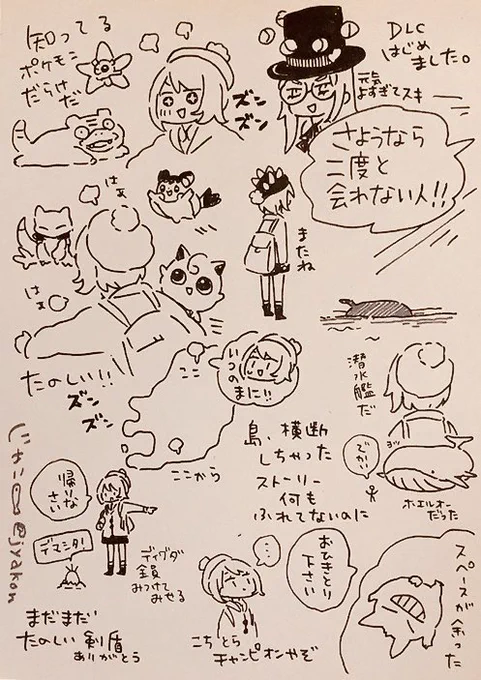 DLC
はじめ
ました。
元気
よすぎてスキ
さようなら
二度と
会れない人!!
知ってる
ポケモン
だらけだ
ズン
ズン
はぁ
はぁ
またね
たのしい!!
ズン
ズン
ここ
いつの
まに!!
ここから
島、横断
しちゃった
ストーリー
何も
ふれてないのに
潜水艦
だ
でかい
ヨッ
ホエルオー
だった
帰りな
さい
デマシタ!
ディグダ
全員
みつけて
みせる
…
おひきとり
下さい
こちとら
チャンピオンやぞ
スペースが余った
まだまだ
たのしい剣盾
ありがとう
じゃこ
@jyakon